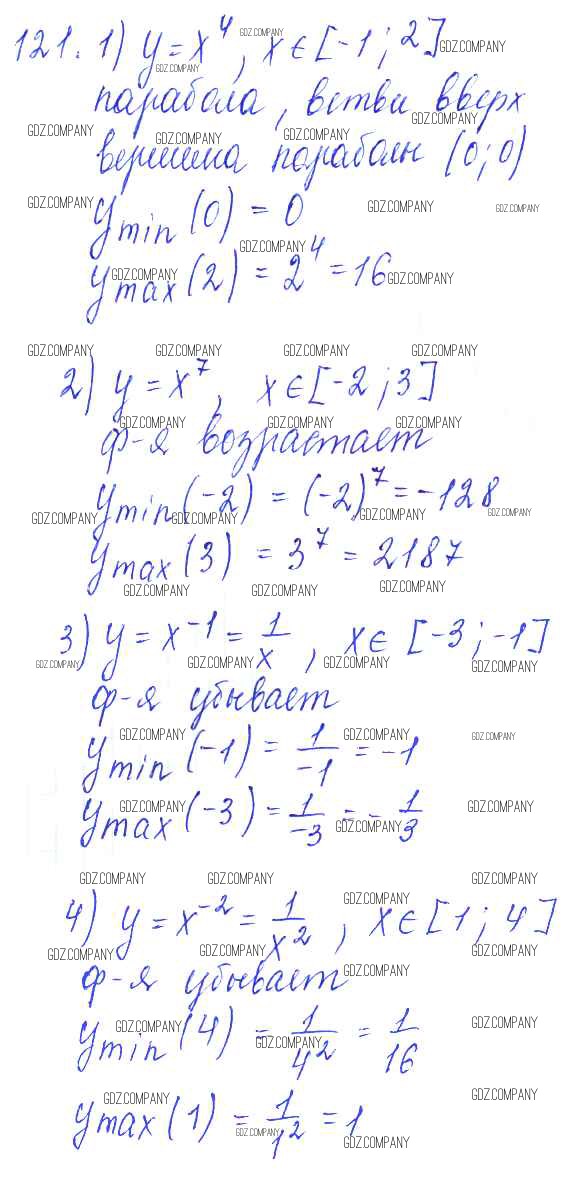 121. 1) y = x⁴, x ∈ [-1; 2]
парабола, ветви вверх
вершина параболы (0; 0)
y min (0) = 0
y max (2) = 2⁴ = 16
2) y = x⁷, x ∈ [-2; 3]
ф-я возрастает
y min (-2) = (-2)⁷ = -128
y max (3) = 3⁷ = 2187
3) y = x⁻¹ = 1/x, x ∈ [-3; -1]
ф-я убывает
y min (-1) = 1/-1 = -1
y max (-3) = 1/-3 = -1/3
4) y = x⁻² = 1/x², x ∈ [1; 4]
ф-я убывает
y min (4) = 1/4² = 1/16
y max (1) = 1/1² = 1
GDZ.COMPANY